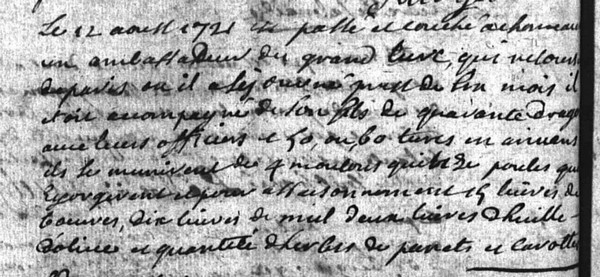 Le 12 aoust 1721 a passé et couché a chomeau
un ambassadeur du grand turc, qui retourne
de paris ou il a sejourné prest de six mois il
etoit acompagné de son fils de quarante drago
avec leurs officiers et 50, ou 60 turcs en
ils se munirent de 4 moutons de poules qu
egorgirent et pour assaisonnement 15 livres de
beurre, dix livres de miel deux livres d'huille
d'olive et quantité d'herbes de panets et carottes